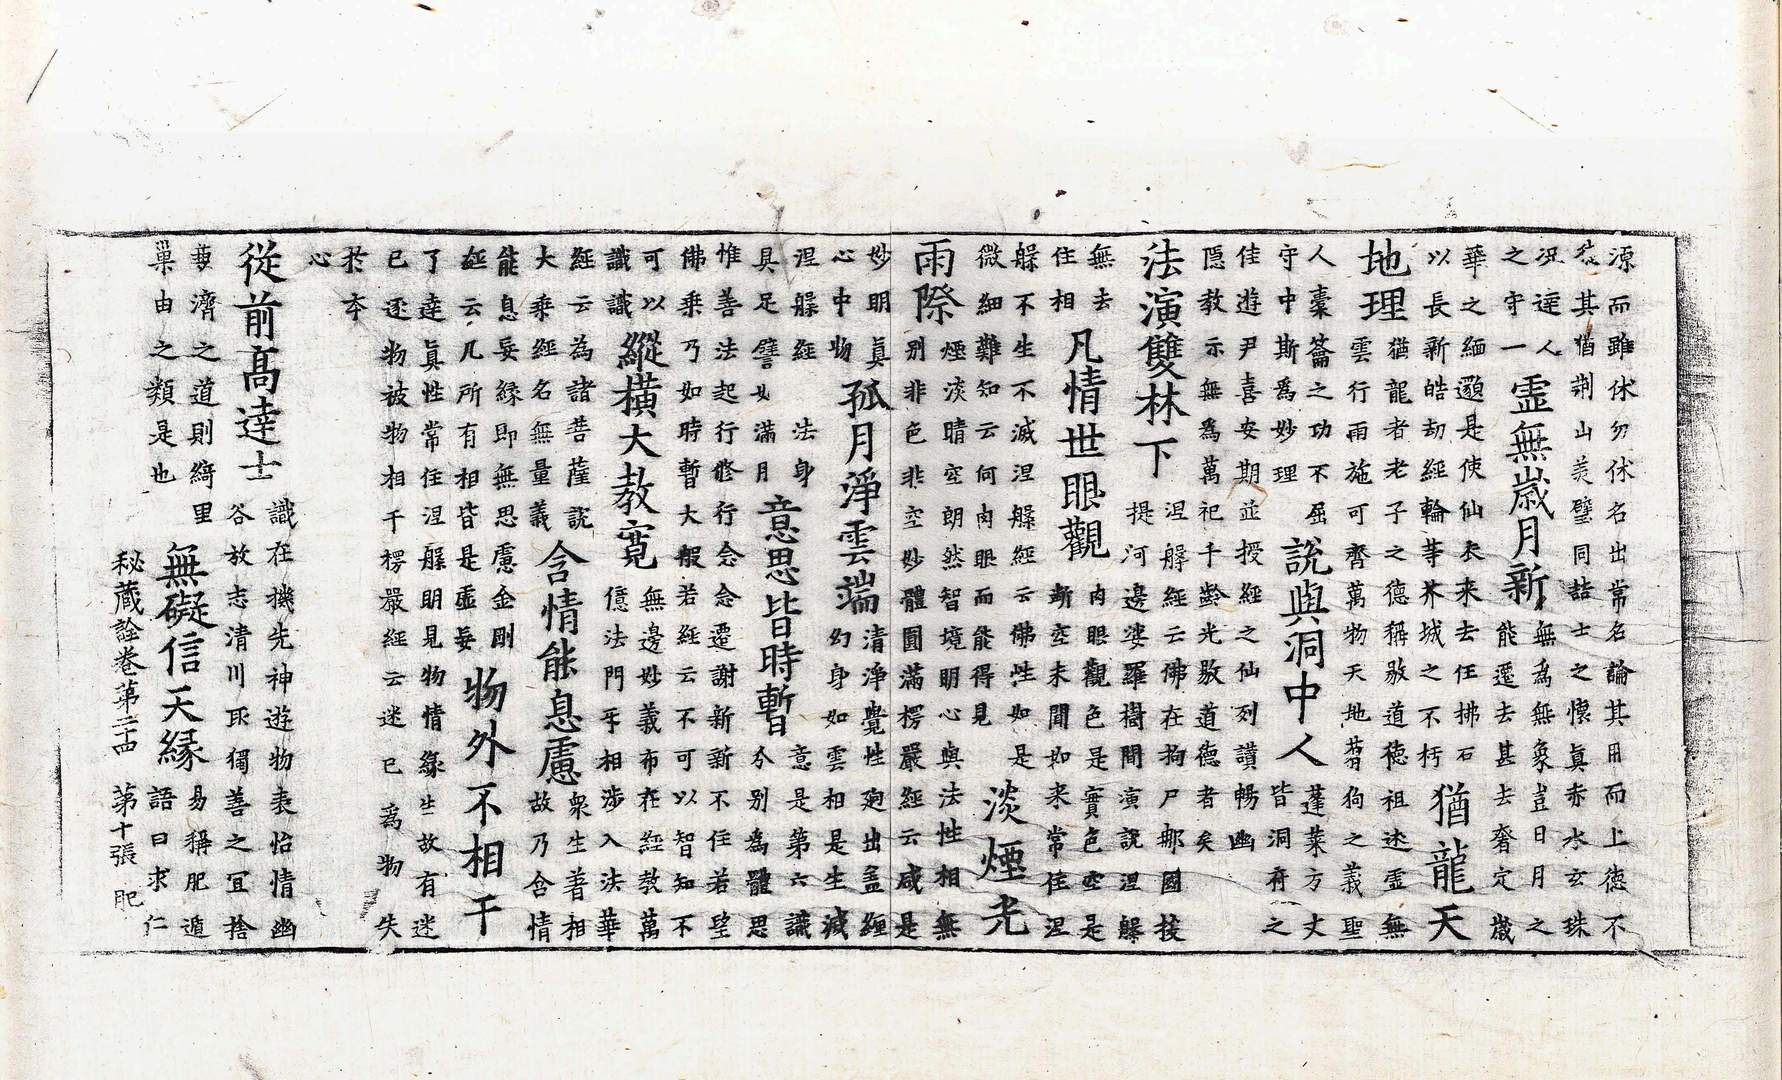 源而雖休勿休名出常名論其用而上德不
從其猶荆山美璧同詰士之懷眞赤水玄珠
況達人
之守一
靈無歲月新
無爲無象豈日月之
能遷去甚去奢定歲
華之緬邈是使仙衣来去任拂石
以長新皓刧經輪等芥城之不朽
猶龍天
地理
猶龍者老子之德稱敭道德祖述虛無
雲行雨施可齊萬物天地芻狗之義聖
人橐籥之功不屈
守中斯爲妙理
說與洞中人
蓬莱方丈
皆洞府之
佳遊尹喜安期並授經之仙列讃暢幽
隱教示無爲萬祀千齡光敭道德者矣
法演雙林下
涅槃經云佛在拘尸那國拔
提河邊娑羅樹間演說涅槃
無去
住相
凡情世眼觀
肉眼觀色是實色空是
斷空未聞如来常住涅
槃不生不滅涅槃經云佛性如是
微細難知云何肉眼而能得見
淡煙光
雨際
煙淡晴空朗然智境明心與法性相無
别非色非空妙體圓滿楞嚴經云咸是
妙明眞
心中物
孤月淨雲端
清淨覺性逈出盖纏
幻身如雲相是生滅
涅槃經 法身
具足譬如滿月
意思皆時暫
意是第六識
今别為體思
惟善法起行修行念念遷謝新新不住若望
佛乘乃如時暫大般若經云不可以智知不
可以
識識
縱橫大教寬
無邊妙義布在經教萬
億法門乎相涉入法華
經云為諸菩薩說
大乘經名無量義
含情能息慮
衆生著相
故乃含情
能息妄緣即無思慮金剛
經云凡所有相皆是虛妄
物外不相干
了達眞性常住涅槃明見物情緣生故有迷
已逐物被物相干楞嚴經云迷已為物失
於本
心
從前高達士
識在機先神遊物表怡情幽
谷放志清川取獨善之冝捨
兼濟之道則綺里
巢由之類是也
無礙信天緣
易稱肥遁
語曰求仁
秘藏詮卷第二十四 第十張 肥